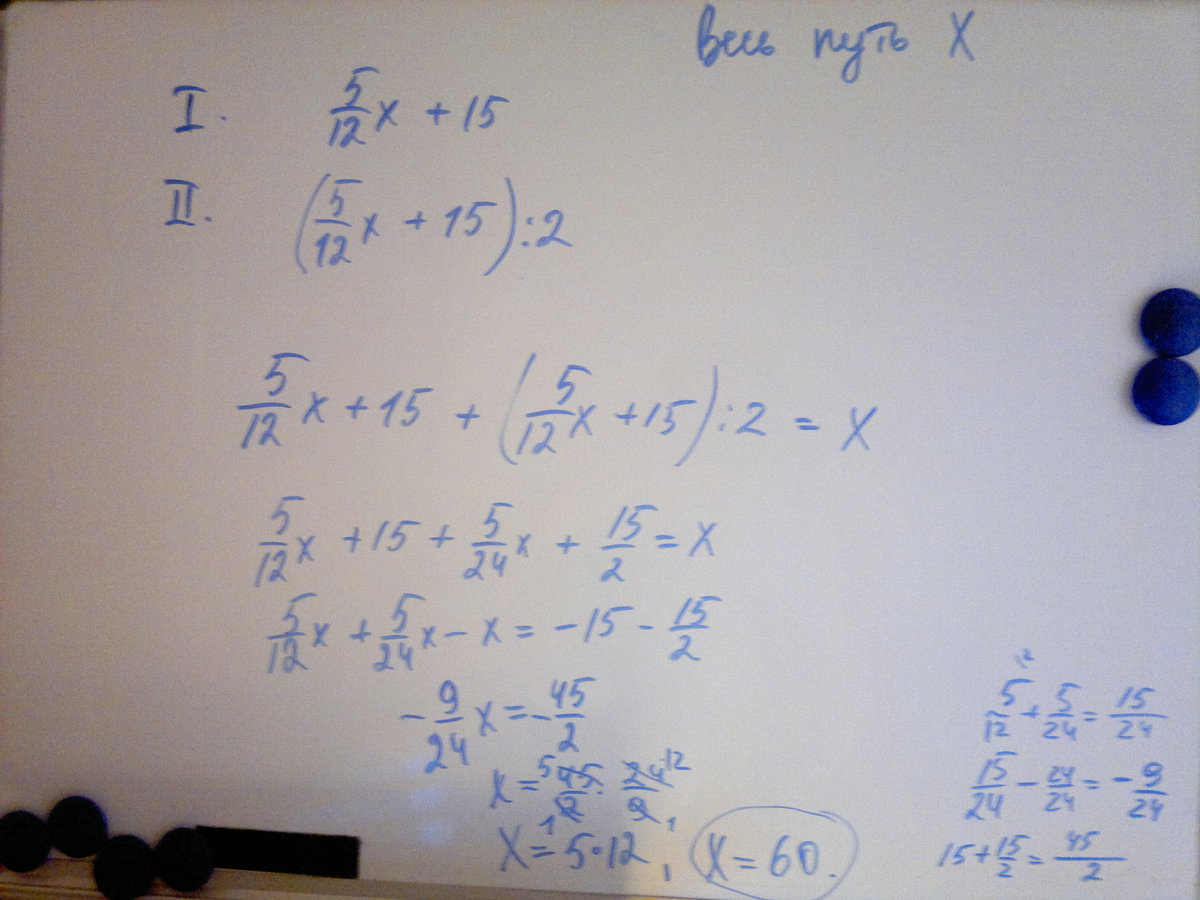 Весь путь X
I. 5/12 x + 15
II. (5/12 x + 15) : 2
5/12 x + 15 + (5/12 x + 15) : 2 = X
5/12 x + 15 + 5/24 x + 15/2 = X
5/12 x + 5/24 x - x = -15 - 15/2
-9/24 x = -45/2
x = 45/2 · 24/9 5 1 12 1
X = 5 · 12, X = 60.
5/12 + 5/24 = 15/24
15/24 - 24/24 = -9/24
15 + 15/2 = 45/2